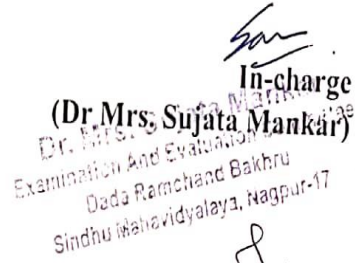 In-charge
(Dr Mrs. Sujata Mankar)
Dr. Mrs. Sujata Mankar
Examination And Evaluation
Dada Ramchand Bakhru
Sindhu Mahavidyalaya, Nagpur-17